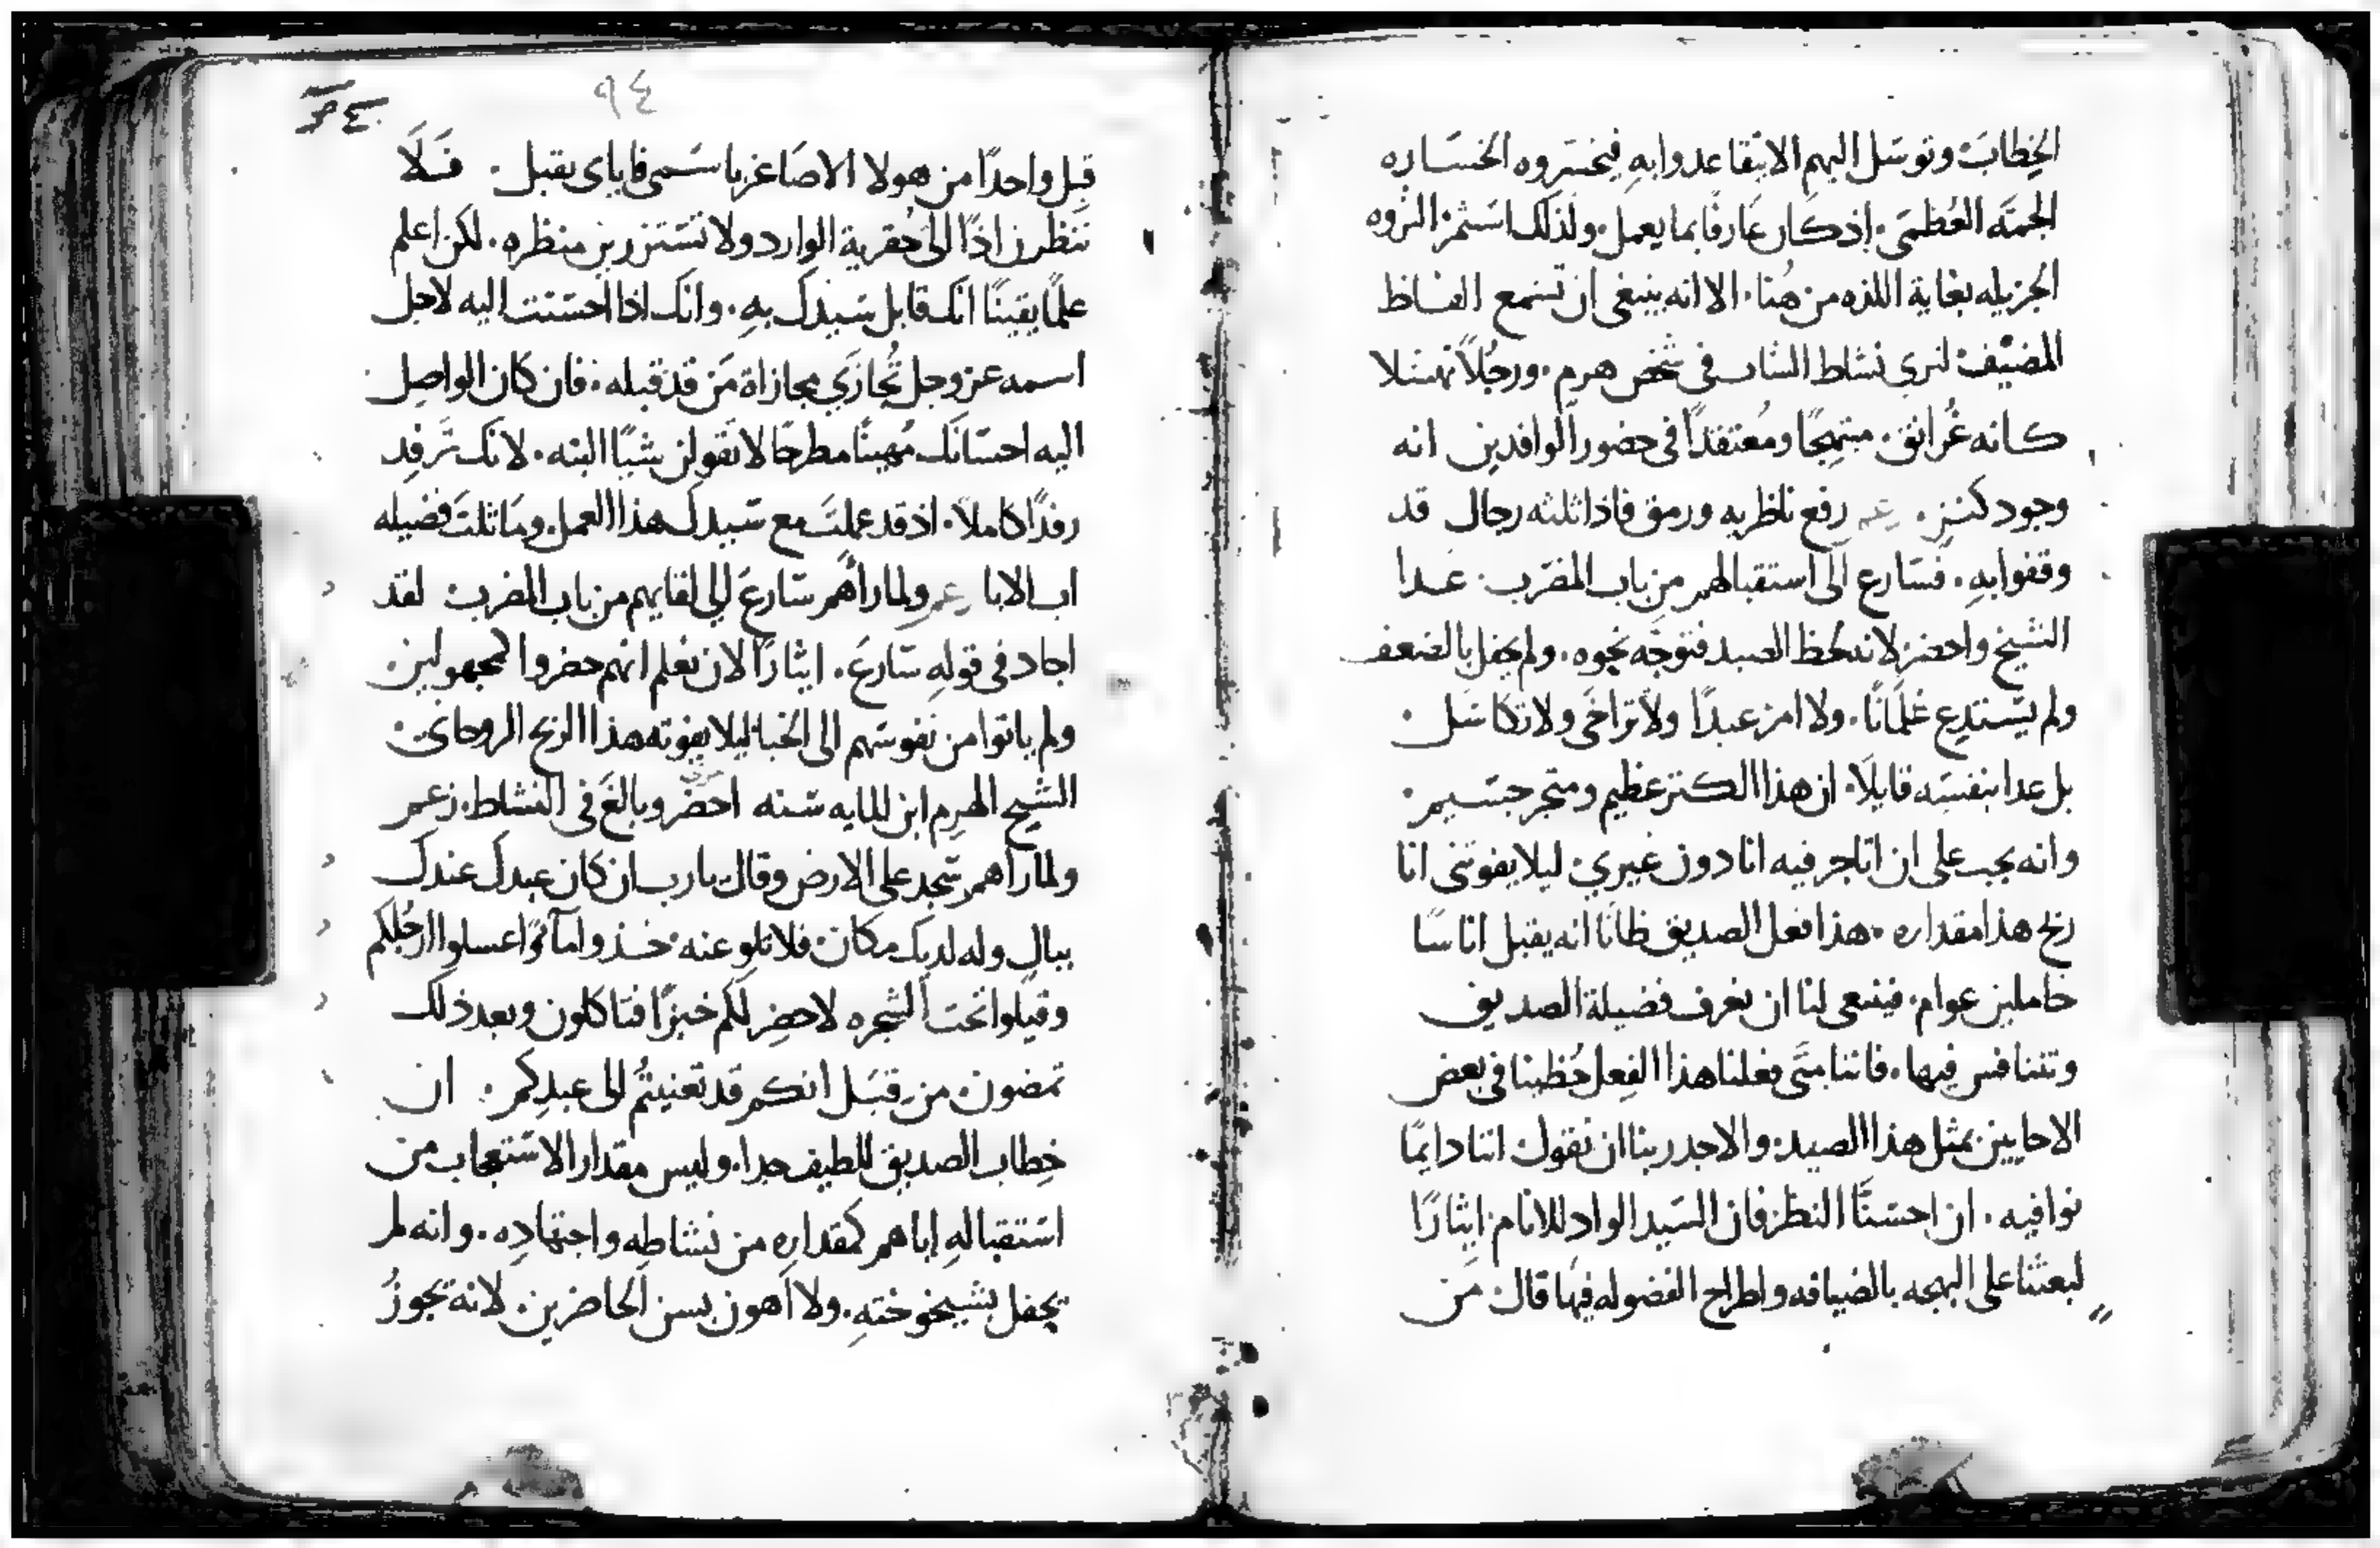 الخطاب وتوسل اليهم الا يتقاعدوا به فيخسروه الخساره
الجمّه العُظمَى. إذ كان عَارفًا بما يعمل. ولذلك استثمر الثروه
الجزيله بغاية اللذه من هُنا. الا انه ينبغي ان تسمع الفاظ
المضيّف لنري نشاط الشاب في شخص هرم. ورجُلاً
كانه غُرانق. مبتهجًا ومُعتقدًا في حضور الوافدين انه
وجود كنز. رفع ناظريه ورمق فاذا ثلثه رجال قد
وقفوا به. فسَارع الى استقبالهم من باب المضرب. عدا
الشيخ واحضر لانه لحظ الصيد فتوجّه نحوه. ولم يحفل بالضعف
ولم يستدع غلمَانًا. ولا امر عبدًا ولا تراخَى ولا تكاسَل.
بل عدا بنفسه قايلاً. ان هذا الكنز عظيم ومتجر جسيم.
وانه يجب على ان اتاجر فيه انا دون غيري ليلا يفوتنى انا
ربح هذا مقداره. هذا فعل الصديق ظانًا انه يقبل اناسًا
خاملين عوام. فينبغى لنا ان نعرف فضيلة الصديق
ونتنافس فيها. فاننا متَى فعلنا هذا الفِعل حُظينا في بعض
الاحايين بمثل هذا الصيد. والاجدر بنا ان نقول اننا دايمًا
نوافيه. ان احسَنَّا النظر فان السَيد الواد للانام ايثارًا
لبعثنا على البهجه بالضيافه واطراح الفضوله فيها قال مَن
٩٤
قبِل واحدًا من هولا الاصَاغر باسمى فاياى يقبل. فَلَا
تَنظرن اذًا الى حُقرية الوارد ولا تستزرين منظره. لكن اعلم
علمًا يقينًا انك قابل سَيدك به. وانك اذا احسَنت اليه لاجل
اسمه عز وجل تُجازَي مجازاة مَن قد قبله. فان كان الواصِل
اليه احسَانك مُهينًا مطرحًا لا تقولن شيًا البته. لانك تَرفِد
رفدًا كاملاً. اذ قد عملتَ مع سَيدك هذا العمل. وماثلتَ فضيله
اب الابا ولما راهم سَارعَ الى لقايهم من باب المضرب لقد
اجاد في قولهِ سَارعَ. ايثارًا لان نعلم انهم حضروا كمجهولين.
ولم ياتوا من نفوسهم الى الخبا ليلا يفوته هذا الربح الروحانى
الشيخ الهرِم ابن المايه سَنه احضر وبالغَ فى النشاط. زعم
ولما راهم سَجد على الارض وقال يا رب ان كان عبدك عندك
ببالِ وله لديك مكان فلا تلو عنه. خذوا مآءً واغسلوا ارجُلكم
وقيّلوا تحت الشجره لاحضِر لكم خبزًا فتاكلون وبعد ذلك
تمضون من قِبَل انكم قد تعنيتُم الى عبدِكم. ان
خِطاب الصديق للطيف جدا. وليس مقدار الاستعجاب من
استقباله اياهم كمقداره من نشاطِهِ واجتهادِه. وانه لم
يحفل بشيخوختهِ. ولا اهون بسن الحاضرين. لانه تجوزُ